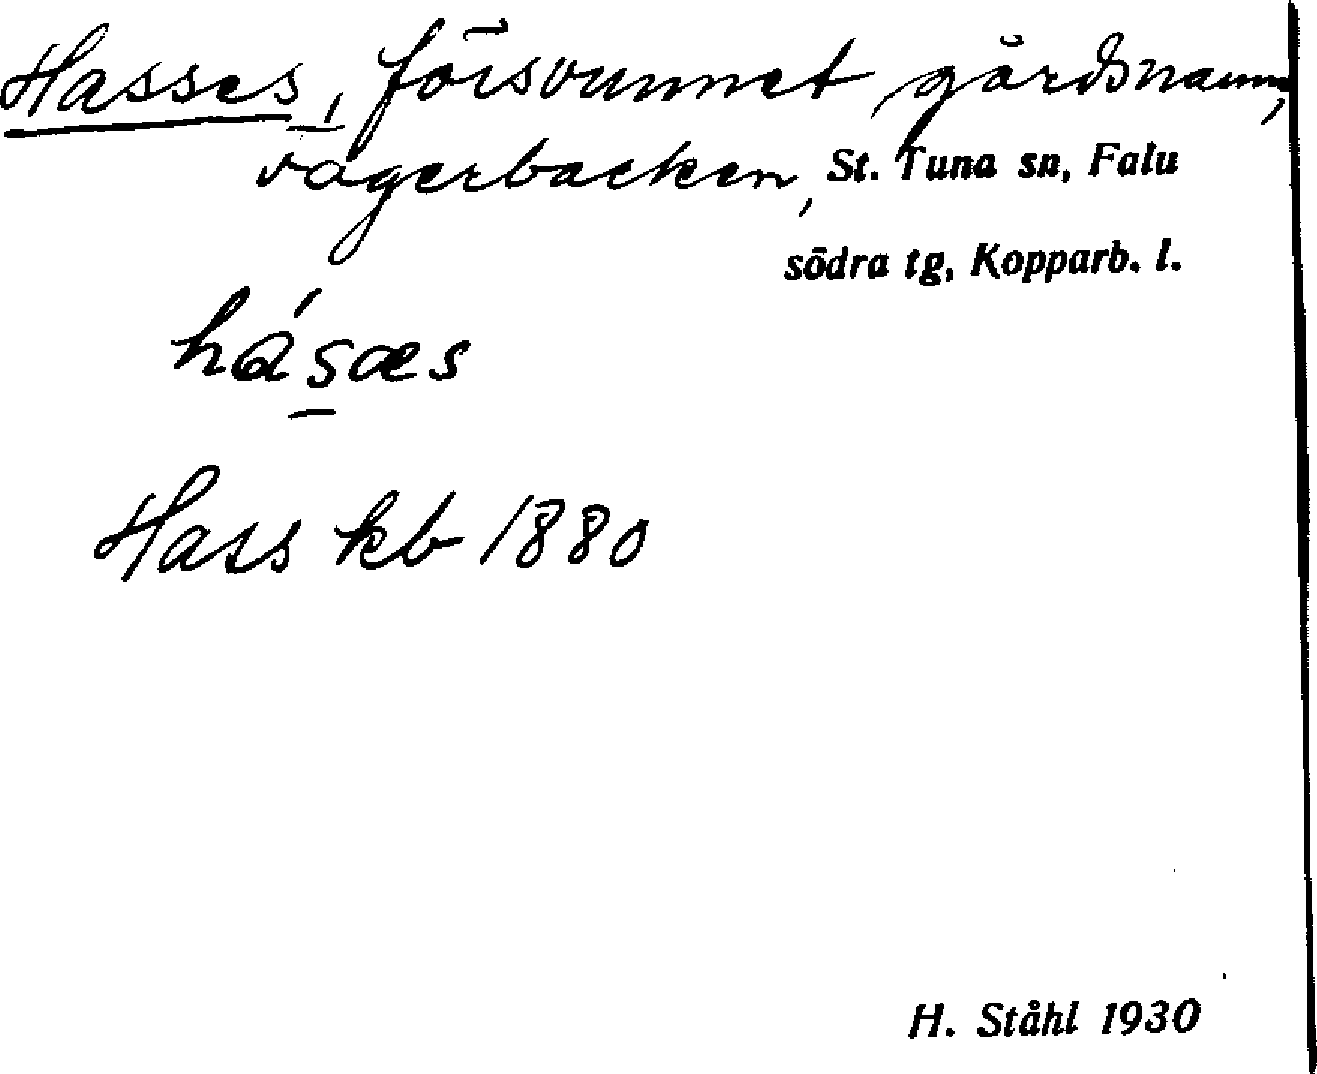 Hasses, försvunnet gårdsnamn,
Vägerbacken, St. Tuna sn, Falu
södra tg, Kopparb. l.
hásæs
Hass kb 1880
H. Ståhl 1930